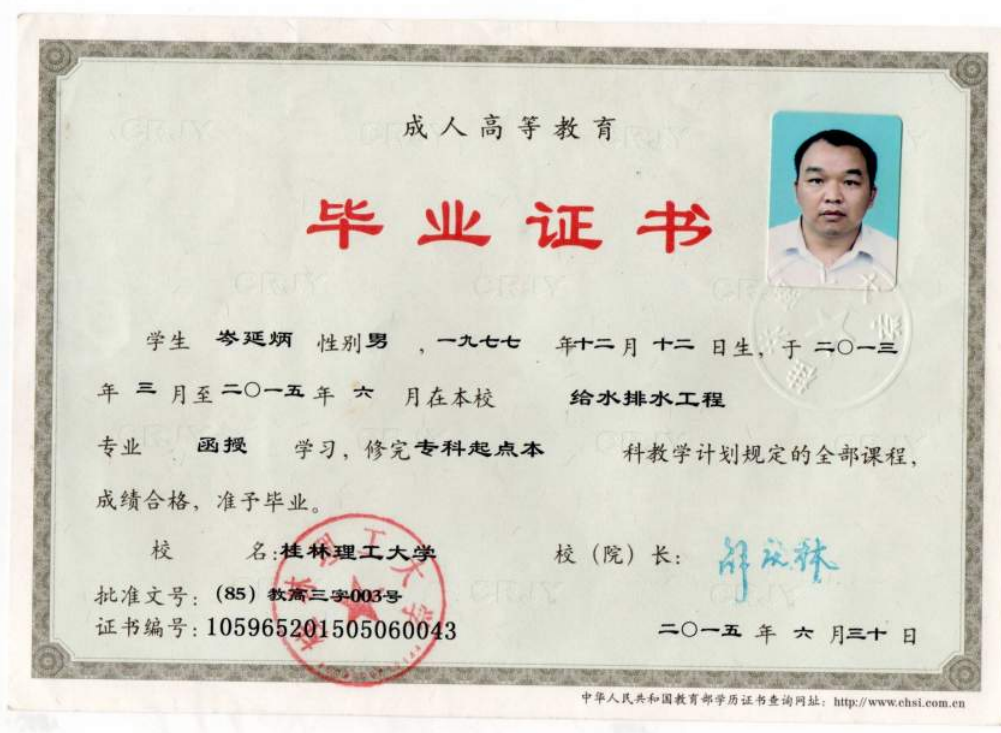 成人高等教育
毕业证书
学生 岑延炳 性别男 ，一九七七 年十二月 十二 日生，于 二〇一三
年 三 月至 二〇一五 年 六 月在本校 给水排水工程
专业 函授 学习，修完专科起点本 科教学计划规定的全部课程，
成绩合格，准予毕业。
校 名：桂林理工大学 校（院）长：
批准文号：(85) 教高三字003号
证书编号：105965201505060043 二〇一五 年 六 月三十 日
桂林理工大学
中华人民共和国教育部学历证书查询网址：http://www.chsi.com.cn